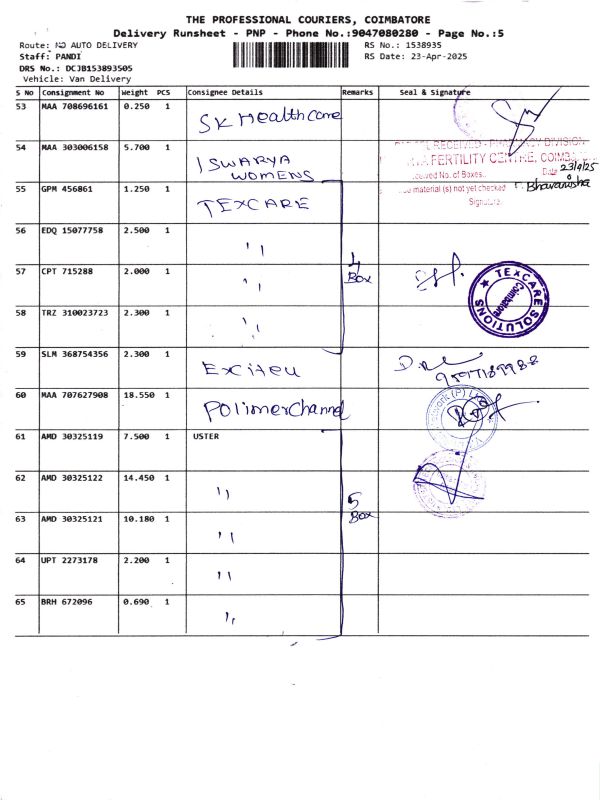 THE PROFESSIONAL COURIERS, COIMBATORE
Delivery Runsheet - PNP - Phone No.:9047080280 - Page No.:5
Route: NO AUTO DELIVERY
RS No.: 1538935
Staff: PANDI
RS Date: 23-Apr-2025
DRS No.: DCJB153893505
Vehicle: Van Delivery
S No Consignment No Weight PCS Consignee Details Remarks Seal & Signature
53 MAA 708696161 0.250 1 SK Healthcare
54 MAA 303006158 5.700 1 ISWARYA WOMENS
RECEIVED - PHARMACY DIVISION
FERTILITY CENTRE, COIMB
No. of Boxes.. Date 23/4/25
material (s) not yet checked
Signature
55 GPM 456861 1.250 1 TEXCARE
56 EDQ 15077758 2.500 1 ''
57 CPT 715288 2.000 1 '' 4 Box
TEXCARE SOLUTIONS Coimbatore
58 TRZ 310023723 2.300 1 ''
59 SLM 368754356 2.300 1
60 MAA 707627908 18.550 1 Polimer Channel
61 AMD 30325119 7.500 1 USTER
62 AMD 30325122 14.450 1 '' 5 Box
63 AMD 30325121 10.180 1 ''
64 UPT 2273178 2.200 1 ''
65 BRH 672096 0.690 1 ''